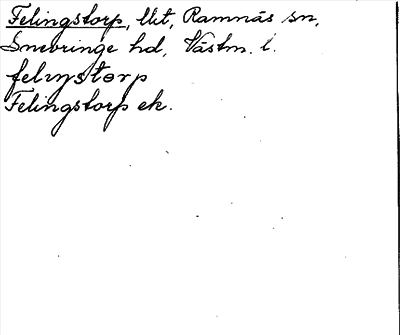 Felingstorp, lht, Ramnäs sn,
Snevringe hd, Västm. l.
felıŋstorp
Felingstorp ek.